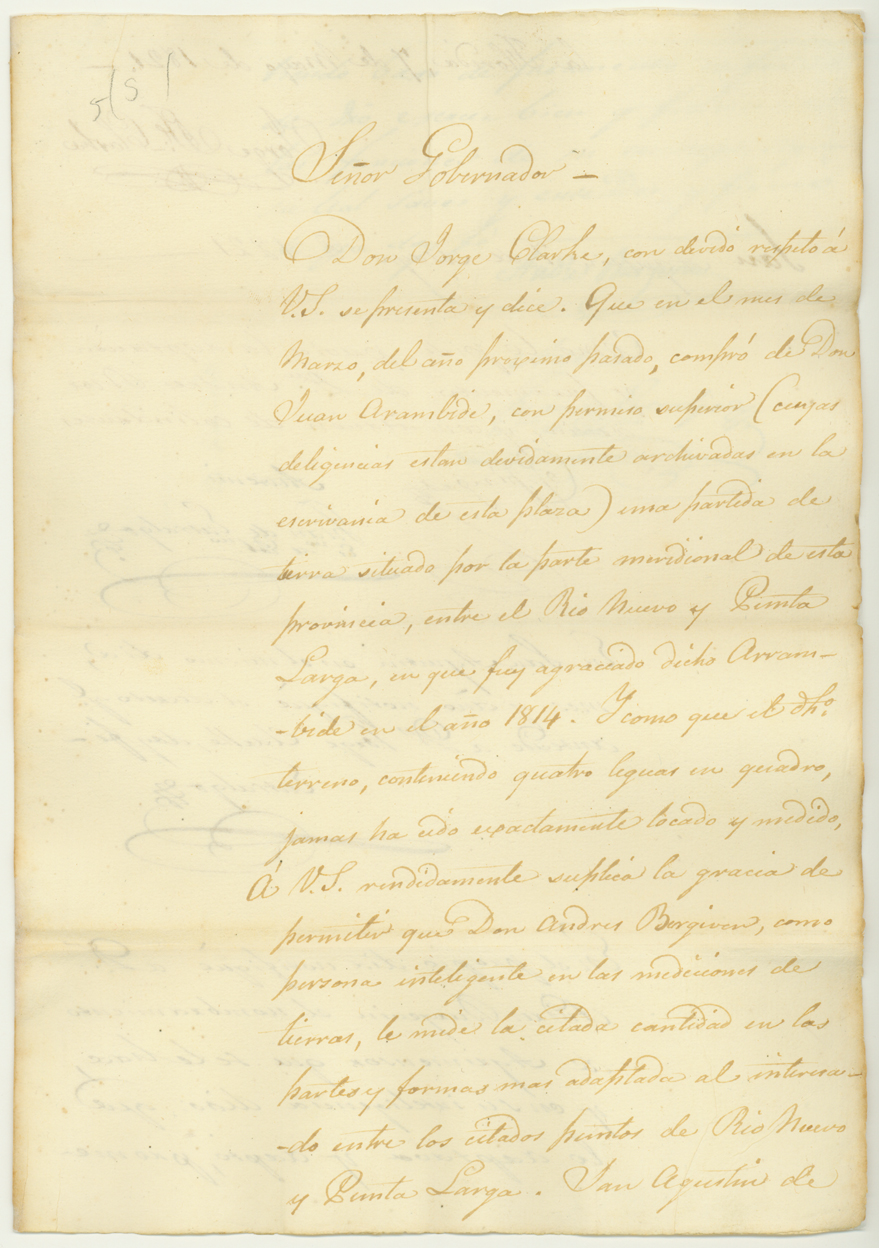 5(5)
Señor Gobernador —
Don Jorge Clarke, con devidó respeto á
V.S. se presenta y dice. Que en el mes de
Marzo, del año procsimo pasado, compró de Don
Juan Arambide, con permiso superior (cuyas
deligencias estan devidamente archivadas en la
escrivanía de esta plaza) una partida de
tierra situado por la parte meridional de esta
provincia, entre el Rio Nuevo y Punta
Larga, en que fuy agraciado dicho Arram-
-bide en el año 1814. Y como que el dho.
terreno, conteniendo quatro leguas en quadro,
jamas ha sido exactamente locado y medido,
Á V.S. rendidamente suplica la gracia de
permitir que Don Andres Bergiven, como
persona inteligente en las mediciones de
tierras, le mide la citada cantidad en las
partes y formas mas adaptada al interesa-
-do entre los citados puntos de Rio Nuevo
y Punta Larga. San Agustin de